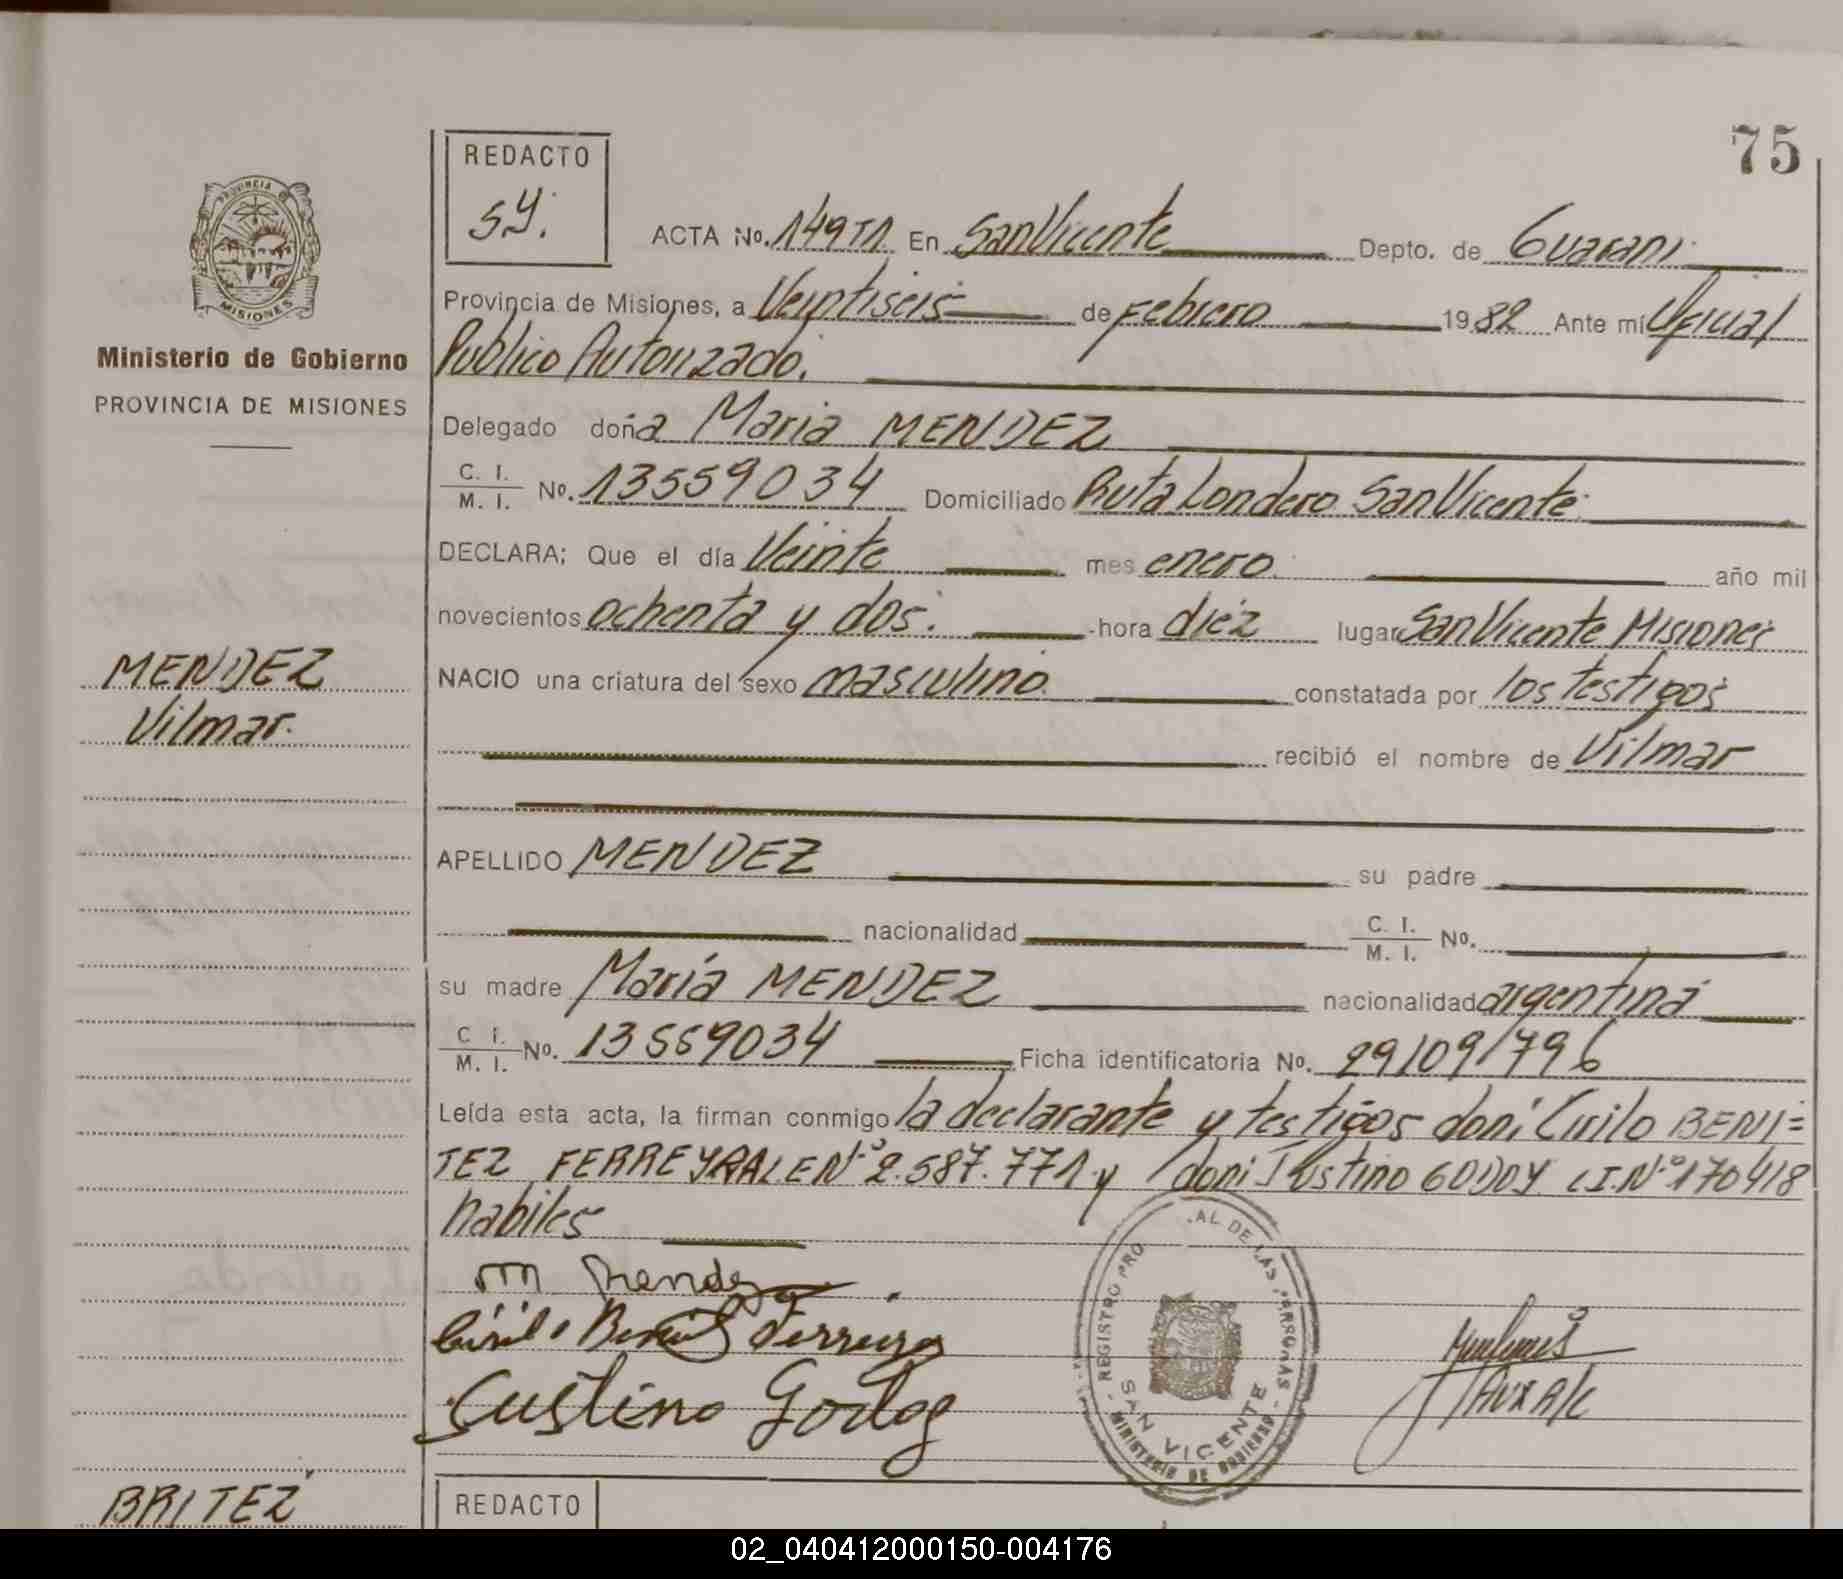 75
REDACTO
S.Y.
ACTA No. 149T1 En San Vicente Depto. de Guarani
Provincia de Misiones, a Veintiseis de Febrero 1982 Ante mí Oficial
Publico Autorizado.
PROVINCIA
MISIONES
Ministerio de Gobierno
PROVINCIA DE MISIONES
Delegado doña Maria MENDEZ
C. I.
M. I. No. 13559034 Domiciliado Ruta Londero San Vicente
DECLARA; Que el día Veinte mes enero año mil
novecientos ochenta y dos. hora diez lugar San Vicente Misiones
MENDEZ
Vilmar.
NACIO una criatura del sexo masculino constatada por los testigos
recibió el nombre de Vilmar
APELLIDO MENDEZ su padre
nacionalidad C. I.
M. I. No.
su madre María MENDEZ nacionalidad argentina
C. I.
M. I. No. 13559034 Ficha identificatoria No. 29/09/796
Leída esta acta, la firman conmigo la declarante y testigos don: Cirilo BENI=
TEZ FERREYRA LE Nº 2.587.771 y don: Justino GODOY C.I. Nº 170418
habiles
M Mendez
Cirilo Benitez Ferreyra
Justino Godoy
REGISTRO PRO AL DE LAS PERSONAS
SAN VICENTE
MINISTERIO DE GOBIERNO
Aux A/C
BRITEZ
REDACTO
02_040412000150-004176